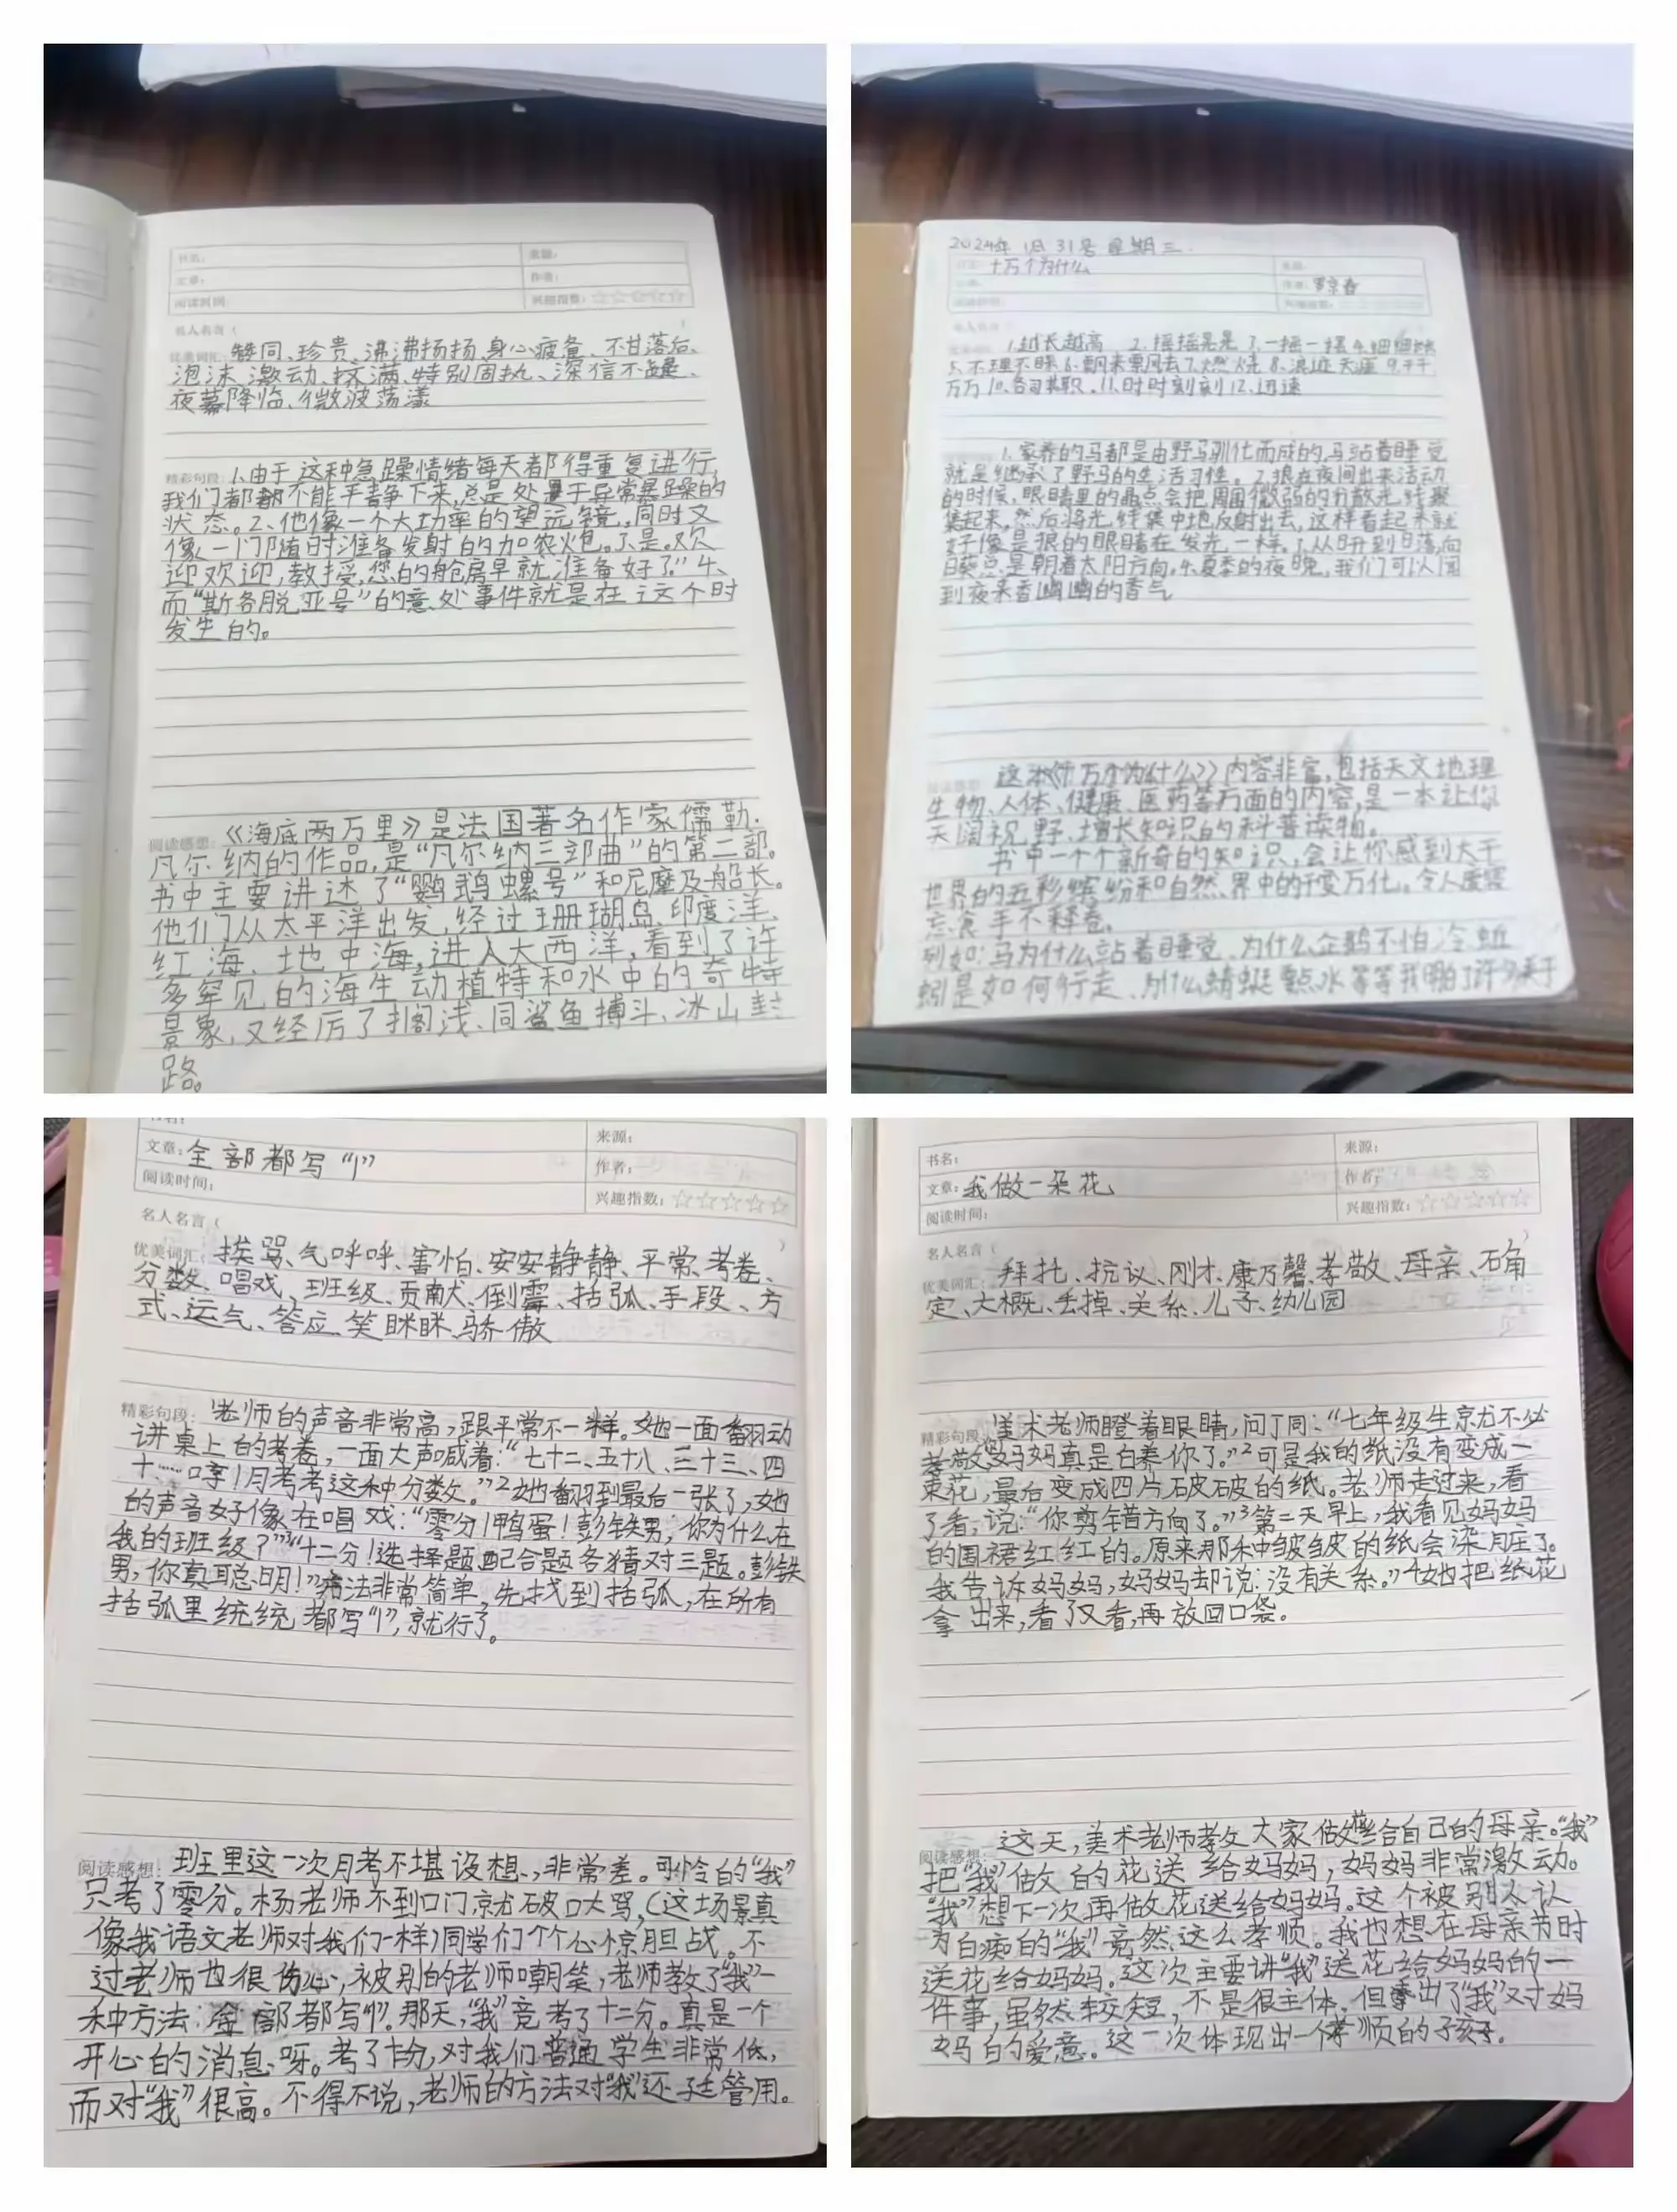 书名:
来源:
文章:
作者:
阅读时间:
兴趣指数:☆☆☆☆☆
名人名言(
)
优美词汇: 赞同、珍贵、沸沸扬扬、身心疲惫、不甘落后、
泡沫、激动、挤满、特别固执、深信不疑、
夜幕降临、微波荡漾
精彩句段: 1.由于这种急躁情绪每天都得重复进行,
我们都不能平静下来,总是处于异常暴躁的
状态。2、他像一个大功率的望远镜,同时又
像一门随时准备发射的加农炮。3.是。欢
迎欢迎,教授,您的舱房早就准备好了”4、
而“斯各脱亚号”的意处事件就是在这个时
发生的。
阅读感想: 《海底两万里》是法国著名作家儒勒.
凡尔纳的作品,是“凡尔纳三部曲”的第二部。
书中主要讲述了“鹦鹉螺号”和尼摩及船长。
他们从太平洋出发,经过珊瑚岛、印度洋、
红海、地中海,进入大西洋,看到了许
多罕见的海生动植特和水中的奇特
景象,又经厉了搁浅、同鲨鱼搏斗、冰山封
路。
2024年1月31号星期三
十万个为什么
1.越长越高 2.摇摇晃晃 3.一摇一摆 4.细细
5.不理不睬 6.飘来飘去 7.燃烧 8.浪迹天涯 9.千千
万万 10.各司其职。11.时时刻刻 12.迅速
1.家养的马都是由野马驯化而成的,马站着睡觉
就是继承了野马的生活习性。2.狼在夜间出来活动
的时候,眼睛里的晶点会把周围微弱的分散光线聚
集起来。然后将光线集中地反射出去,这样看起来就
好像是狼的眼睛在发光一样。3.从日升到日落,向
日葵总是朝着太阳方向。4.夏季的夜晚,我们可以闻
到夜来香幽幽的香气
这本《十万个为什么》内容非富,包括天文地理
生物、人体、健康、医药等方面的内容,是一本让你
天阔视野、增长知识的科普读物。
书中一个个新奇的知识,会让你感到大千
世界的五彩缤纷和自然界中的千变万化。令人废寝
忘食手不释卷。
例如:马为什么站着睡觉、为什么企鹅不怕冷、蚯
蚓是如何行走、为什么蜻蜓点水等等我明白了许多关于
书名:
文章: 全部都写“1”
来源:
作者:
阅读时间:
兴趣指数:☆☆☆☆☆
名人名言(
)
优美词汇: 挨骂、气呼呼、害怕、安安静静、平常、考卷、
分数、唱戏、班级、贡献、倒霉、括弧、手段、方
式、运气、答应、笑眯眯、骄傲
精彩句段: 1老师的声音非常高,跟平常不一样。她一面翻动
讲桌上的考卷,一面大声喊着:“七十二、五十八、三十三、四
十……哼!月考考这种分数。”2她翻到最后一张了,她
的声音好像在唱戏:“零分!鸭蛋!彭铁男,你为什么在
我的班级?”3“十二分!选择题配合题各猜对三题。彭铁
男,你真聪明!”方法非常简单,先找到括弧,在所有
括弧里统统都写“1”,就行了。
阅读感想: 班里这一次月考不堪设想,非常差。可怜的“我”
只考了零分。杨老师不到口门就破口大骂,(这场景真
像我语文老师对我们一样)同学们个个心惊胆战。不
过老师也很伤心,被别的老师嘲笑,老师教了“我”一
种方法:全部都写“1”。那天,“我”竟考了十二分。真是一个
开心的消息呀。考了十分,对我们普通学生非常低,
而对“我”很高。不得不说,老师的方法对“我”还挺管用。
书名:
来源:
文章: 我做一朵花
作者:
阅读时间:
兴趣指数:☆☆☆☆☆
名人名言(
)
优美词汇: 拜托、抗议、刚才、康乃馨、孝敬、母亲、确
定、大概、丢掉、关系、儿子、幼儿园
精彩句段: 1美术老师瞪着眼睛,问丁同:“七年级生就不必
孝敬妈妈真是白养你了。”2可是我的纸没有变成一
束花,最后变成四片破破的纸。老师走过来,看
了看,说:“你剪错方向了。”3第二天早上,我看见妈妈
的围裙红红的。原来那种皱皱的纸会染脏了。
我告诉妈妈,妈妈却说:没有关系。”4她把纸花
拿出来,看了又看,再放回口袋。
阅读感想: 这天,美术老师教大家做花给自己的母亲。“我”
把“我”做的花送给妈妈,妈妈非常激动。
“我”想下一次再做花送给妈妈。这个被别人认
为白痴的“我”竟然这么孝顺。我也想在母亲节时
送花给妈妈。这次主要讲“我”送花给妈妈的一
件事,虽然较短,不是很主体,但写出了“我”对妈
妈的爱意。这一次体现出一个孝顺的子孩子。